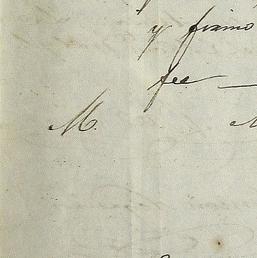 y firmó
fee
M.